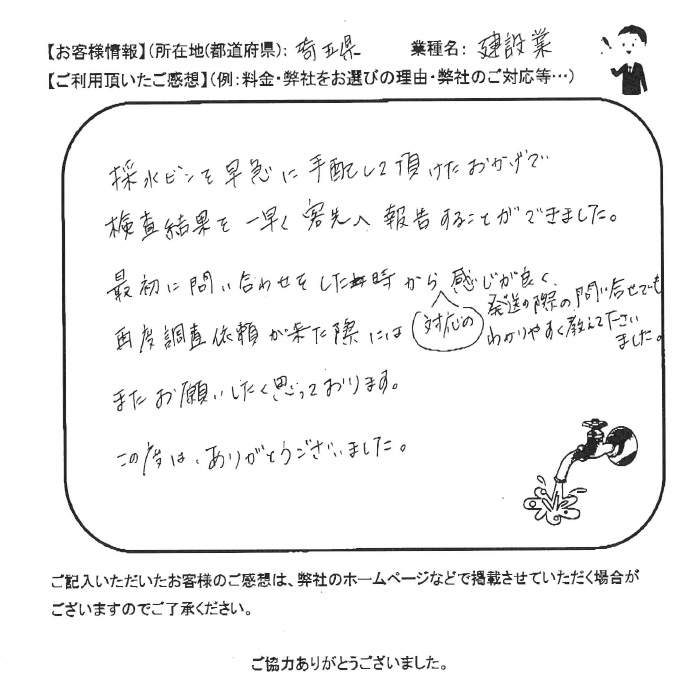 【お客様情報】(所在地(都道府県): 埼玉県 業種名: 建設業
【ご利用頂いたご感想】(例:料金・弊社をお選びの理由・弊社のご対応等…)
採水ビンを早急に手配して頂けたおかげで
検査結果を一早く客先へ報告することができました。
最初に問い合わせをした時から対応の感じが良く、
発送の際の問い合せでも
わかりやすく教えて下さい
ました。
再度調査依頼が来た際には
またお願いしたく思っております。
この度は、ありがとうございました。
ご記入いただいたお客様のご感想は、弊社のホームページなどで掲載させていただく場合が
ございますのでご了承ください。
ご協力ありがとうございました。